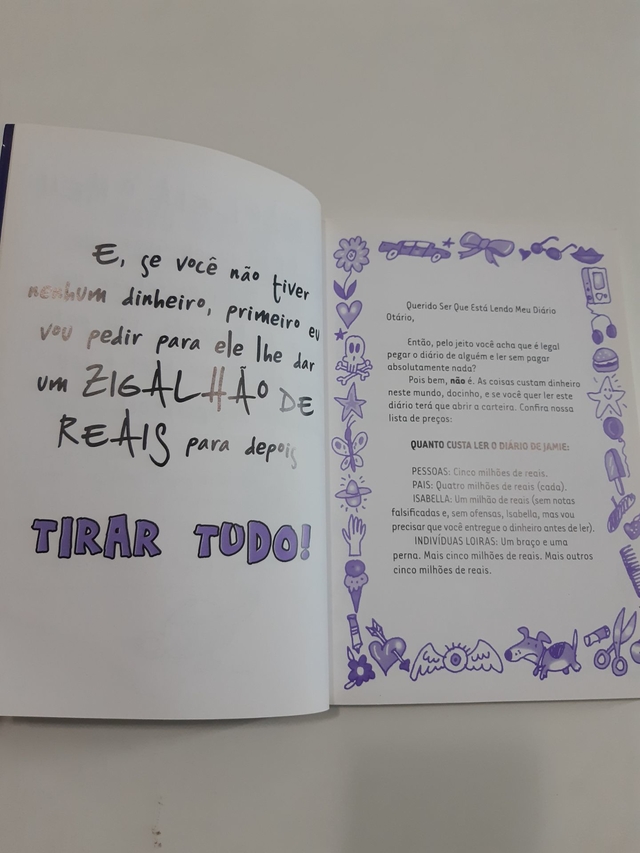 E, se você não tiver
nenhum dinheiro, primeiro eu
vou pedir para ele lhe dar
um ZIGALHÃO DE
REAIS para depois
TIRAR TUDO!
Querido Ser Que Está Lendo Meu Diário
Otário,
Então, pelo jeito você acha que é legal
pegar o diário de alguém e ler sem pagar
absolutamente nada?
Pois bem, não é. As coisas custam dinheiro
neste mundo, docinho, e se você quer ler este
diário terá que abrir a carteira. Confira nossa
lista de preços:
QUANTO CUSTA LER O DIÁRIO DE JAMIE:
PESSOAS: Cinco milhões de reais.
PAIS: Quatro milhões de reais (cada).
ISABELLA: Um milhão de reais (sem notas
falsificadas e, sem ofensas, Isabella, mas vou
precisar que você entregue o dinheiro antes de ler).
INDIVÍDUAS LOIRAS: Um braço e uma
perna. Mais cinco milhões de reais. Mais outros
cinco milhões de reais.